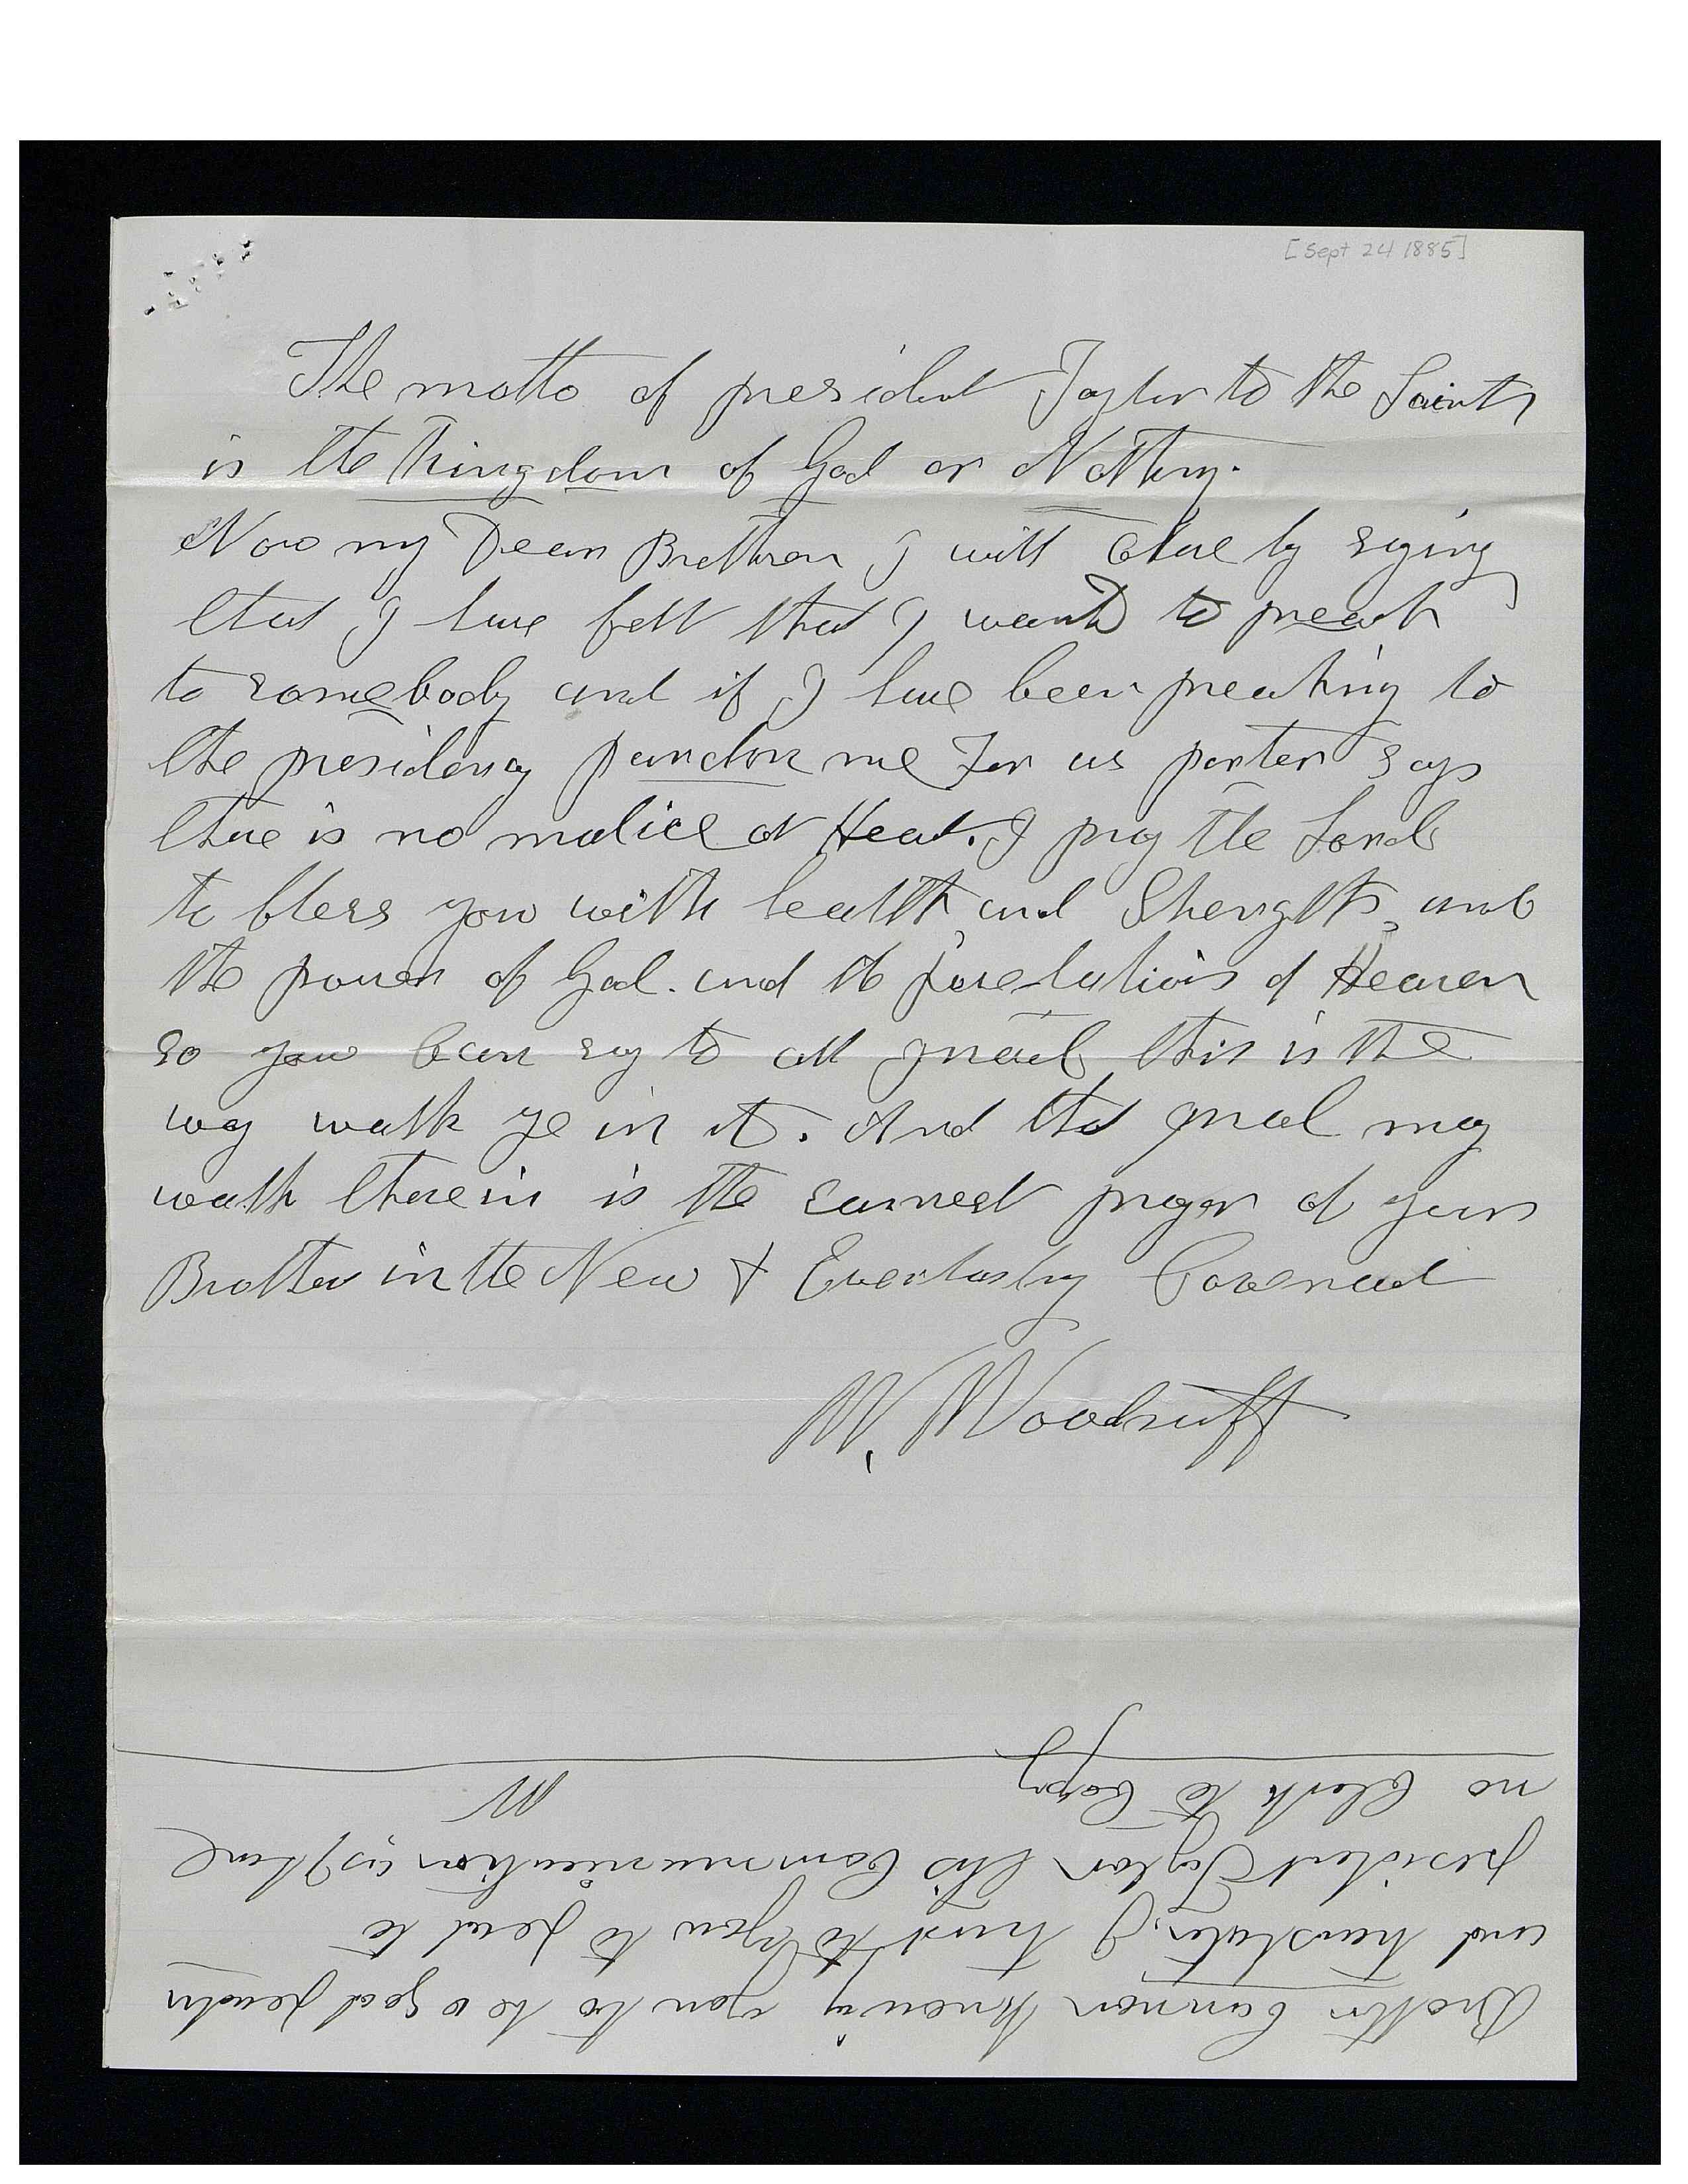 [Sept 24 1885]
The motto of president Taylor to the Saints
is the Kingdom of God or Nothing.
Now my Dear Brethren I will Close by saying
that I have felt that I wanted to preach
to somebody and if I have been preaching to
the presidency pardon me For as porter says
there is no malice at Heart. I pray the Lord
to bless you with health, and Strength, and
the power of God. and the revelations of Heaven
so you Can say to all Israel this is the
way walk ye in it. And that Israel may
walk therein is the earnest prayer of your
Brother in the New & Everlasting Covenant
W. Woodruff
Brother Cannon Knowing you to be a good reader
and translator, I trust to you to read to
president Taylor this Communication as I have
no Clerk to Copy
W